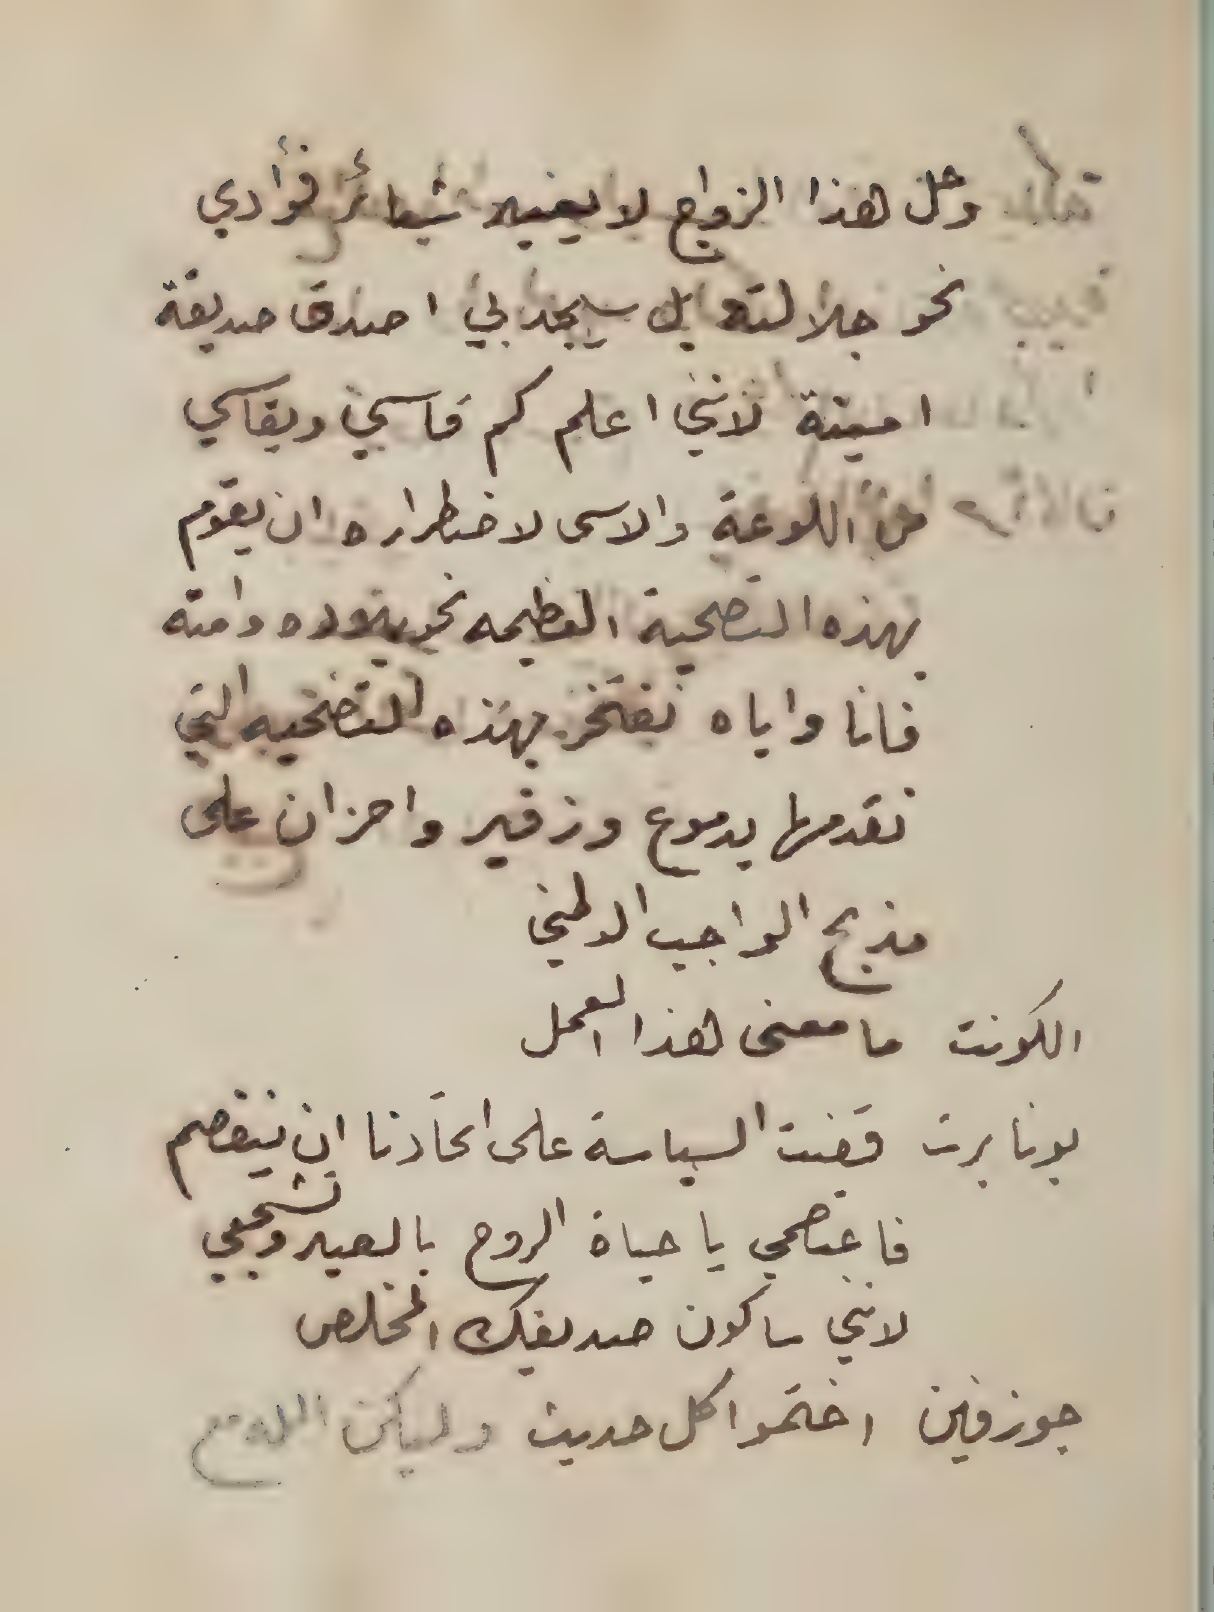 وحل هذا الزواج لا يغير شعائر فؤادي
نحو جلالته بل سيجد بي اصدق صديقة
امينة لانني اعلم كم قاسى ويقاسي
من اللوعة والاسى لاضطراره ان يقوم
بهذه التضحية العظيمه نحو بلاده وامته
فانا واياه نفتخر بهذه التضحيه التي
نقدمها بدموع وزفير واحزان على
مذبح الواجب الوطني
الكونت ما معنى هذا العمل
بونابرت قضت السياسة على اتحادنا ان ينفصم
فاعتصمي يا حياة الروح بالصبر وتشجعي
لانني ساكون صديقك المخلص
جوزفين اختموا كل حديث وليكن